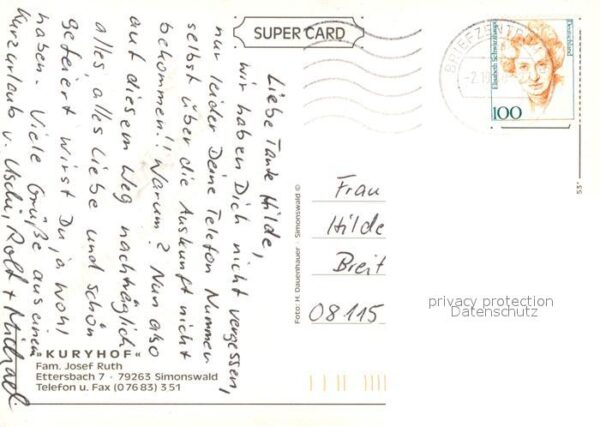 SUPER CARD
BRIEFZENTR
-2.10
Deutschland
Elisabeth Schwarzhaupt
100
Liebe Tante Hilde,
wir haben Dich nicht vergessen,
nur leider Deine Telefon Nummer
selbst über die Auskunft nicht
bekommen!! Warum? Nun also
auf diesem Weg nachträglich
alles, alles Liebe und schön
gefeiert wirst Du ja wohl
haben. Viele Grüße aus einem
Kurzurlaub v. Uschi, Rolf + Michael
Foto: H. Dauenhauer · Simonswald ©
Frau
Hilde
Breit
08115
53°
privacy protection
Datenschutz
"KURYHOF"
Fam. Josef Ruth
Ettersbach 7 · 79263 Simonswald
Telefon u. Fax (0 76 83) 3 51